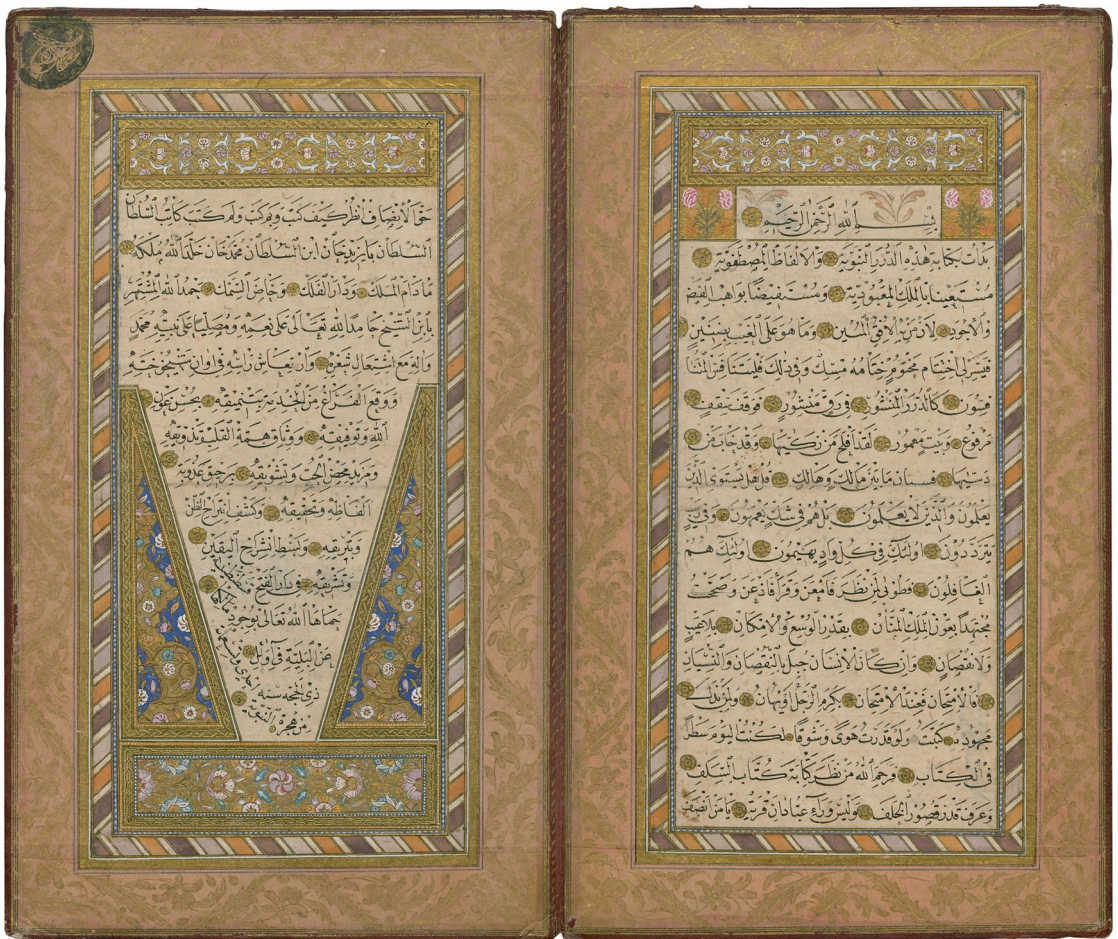 بسم الله الرحمن الرحيم
بدأت بكتابة هذه الدرر النبوية والالفاظ المصطفوية
مستعينا بالملك المعبودية ومستفيضا بواهب الفيض
والجود لا ريب بالافق المبين وما هو على الغيب بضنين
فيسر لي اختتام مختوم ختامه مسك وفي ذلك فليتنافس المتنا
فسون كالدرر المنثور في رق منشور وسقف
مرفوع وبيت معمور لقد افلح من زكيها وقد خاب من
دسيها فستان ما بين مالك وهالك قل هل يستوى الذين
يعلمون والذين لا يعلمون بل هم في شك يعمهون وفي ريب
يترددون اولئك في كل واد يهيمون اولئك هم
الغافلون فطوبى لمن نظر فامعن وقرأ فاذعن
مجتهدا بعون الملك المنان بقدر الوسع والامكان بلا عيب
ولا نقصان وان كان الانسان جبل بالنقصان والنسيان
فالامتحان فعند الامتحان يكرم الرجل او يهان
كتبت ولو قدرت هوى وشوقا لكنت اليوم سطرا
في الكتاب رحم الله من نظر كتابة كتاب السلف
وعرف قدر قصور الخلف وليس وراء عبادان قرية يا من انصف
حق الانصاف انظر كيف كتب وبم كتب ولم كتب كاتب السلطان
السلطان بايزيد خان ابن السلطان محمد خان خلد الله ملكه
ما دام الملك ودار الفلك وخاض السمك حمد الله المشتهر
بابن الشيخ حامدا لله تعالى على نعمه ومصليا على نبيه محمد
واله مع اشتعال شعره وارتعاش راسه في اوان شيخوخته
ووقع الفراغ من بتنميقه بحسن عون
الله وتوفيقه
ومزيد محض الحب وتشويقه
الفاظه وتحقيقه وكشف
وبسط انشراح اليقين
وتشريفه في دار الفتح
حماها الله تعالى بوجود
عن البلية في اوائل
ذي الحجة سنه
من هجرة النبوية